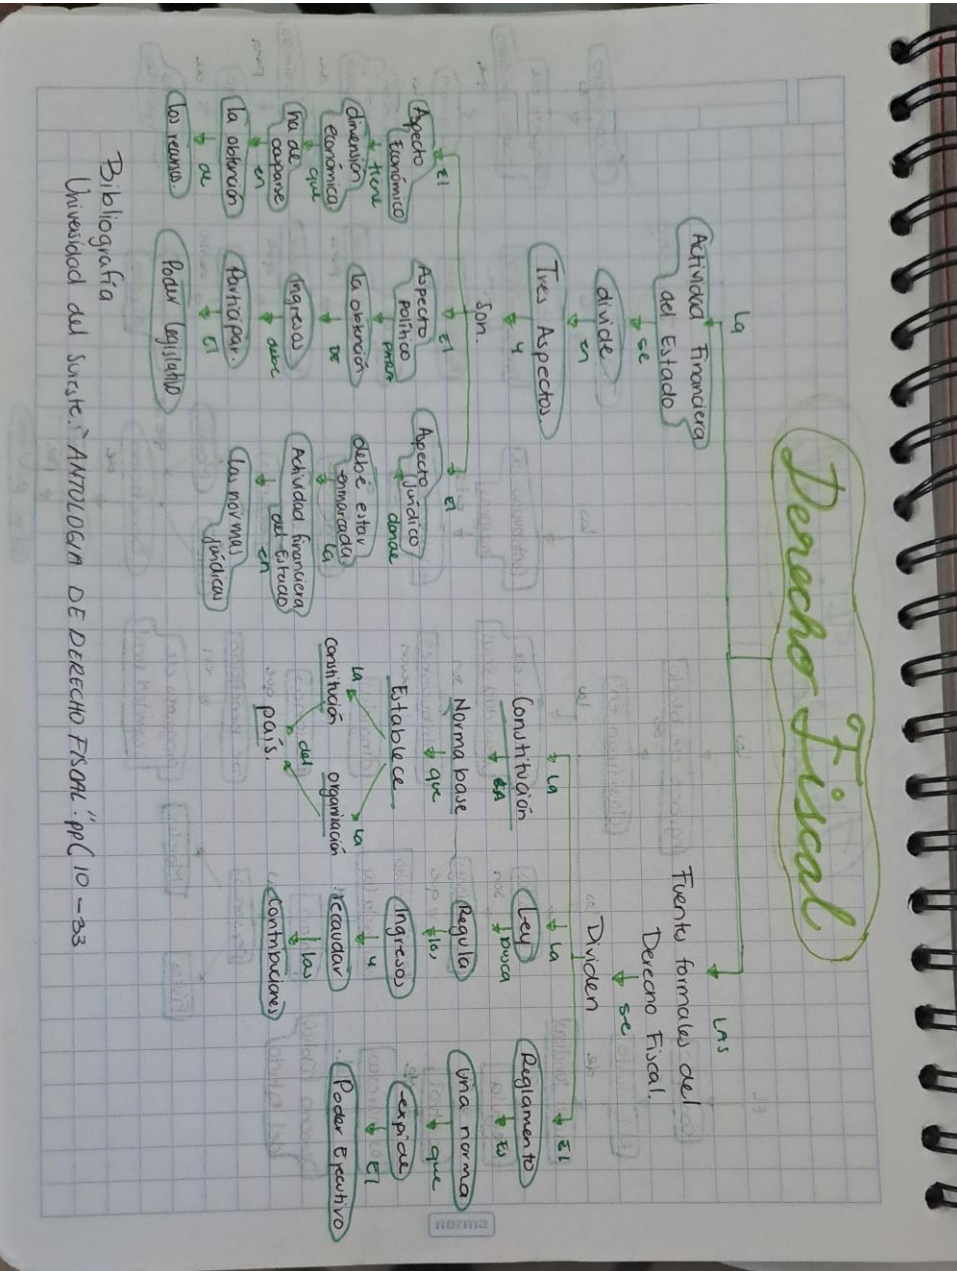 Derecho Fiscal
La
Actividad Financiera
del Estado
se
divide
en
Tres Aspectos.
y
Son.
El
Aspecto
Económico
tiene
dimensión
económica
que
ha de
en
la obtención
de
los recursos.
El
Aspecto
político
para
la obtención
De
ingresos
debe
Participar.
El
Poder legislativo
El
Aspecto
jurídico
donde
debe estar
enmarcada
la
Actividad financiera
del Estado
en
las normas
jurídicas
LAS
Fuente formales del
Derecho Fiscal.
se
Dividen
La
Constitución
LA
Norma base
que
Establece
La
constitución
La
organización
del
país.
La
Ley
busca
Regula
los
Ingresos
y
recaudar
las
Contribuciones
El
Reglamento
Es
Una norma
que
expide
El
Poder Ejecutivo
Bibliografía
Universidad del Sureste. "ANTOLOGIA DE DERECHO FISCAL". pp(10-33
norma